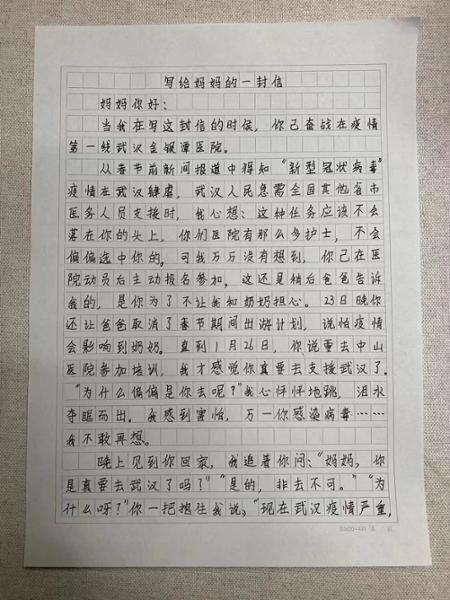 写给妈妈的一封信
妈妈你好：
当我在写这封信的时候，你已奋战在疫情
第一线武汉金银潭医院。
从春节前新闻报道中得知“新型冠状病毒”
疫情在武汉肆虐，武汉人民急需全国其他省市
医务人员支援时，我心想：这种任务应该不会
落在你的头上，你们医院有那么多护士，不会
偏偏选中你的，可我万万没有想到，你已在医
院动员后主动报名参加，这还是稍后爸爸告诉
我的，是你为了不让我和奶奶担心。23日晚你
还让爸爸取消了春节期间出游计划，说怕疫情
会影响到奶奶。直到1月26日，你说要去中山
医院参加培训，我才感觉你真要去支援武汉了。
“为什么偏偏是你去呢？”我心怦怦地跳，泪水
夺眶而出，我感到害怕，万一你感染病毒……
我不敢再想。
晚上见到你回家，我追着你问：“妈妈，你
是真要去武汉了吗？”“是的，非去不可。”“为
什么呀？”你一把抱住我说：“现在武汉疫情严重，